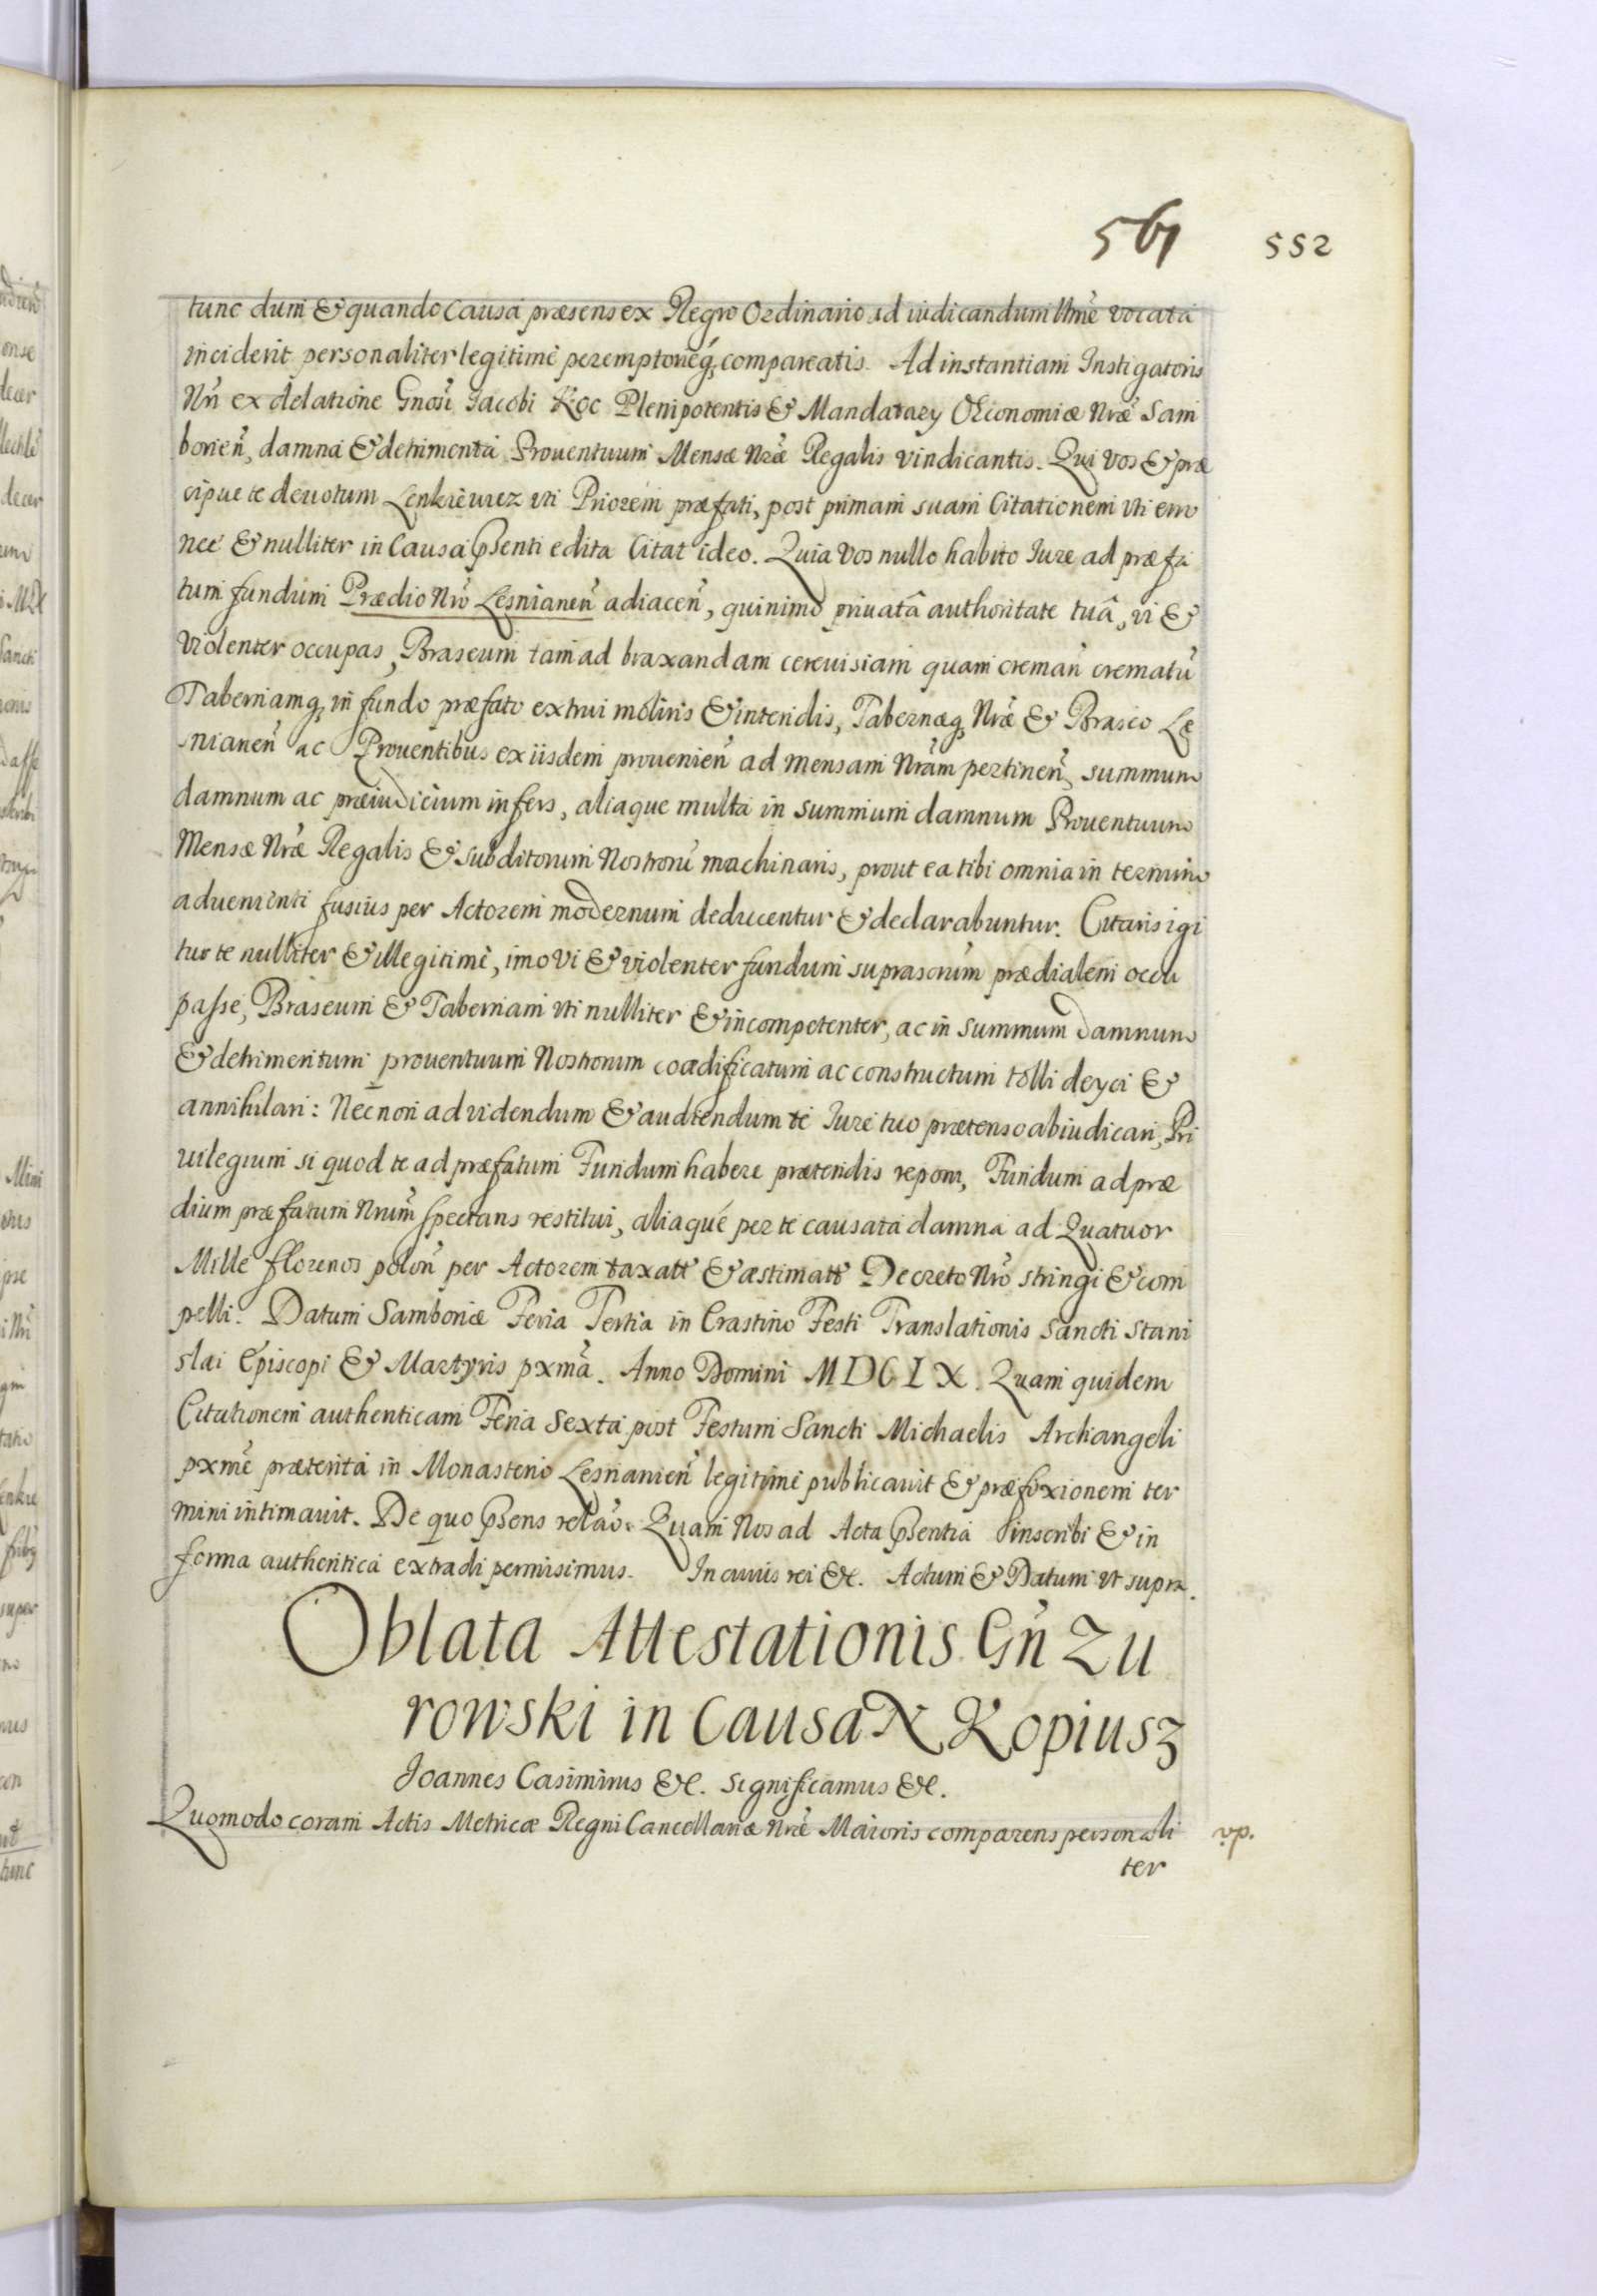 561 552
tunc dum & quando Causa præsens ex Regro Ordinario ad iudicandum vocata
inciderit personaliter legitimè peremptorieq; compareatis. Ad instantiam Instigatoris
Nri ex delatione Gnosi Jacobi Roc Plenipotentis & Mandatary OEconomiæ Nræ Sam
borień, damna & detrimenta Prouentuum Mensæ Nræ Regalis vindicantis. Qui Vos & præ
cipue te deuotum Lenkiewicz vti Priorem præfati, post primam suam Citationem vti erro
nee & nulliter in Causa pñsenti edita Citat ideo. Quia Vos nullo habito Iure ad præfa
tum fundum Prædio Nrō Lesnianeń adiaceń, quinimo priuatâ authoritate tuâ, vi &
violenter occupas, Braseum tam ad braxandam cereuisiam quam cremań crematū
Tabernamq; in fundo præfato extrui moliris & intendis, Tabernæq; Nræ & Brasio Le
snianeń ac Prouentibus ex iisdem prouenień ad mensam Nram pertineń, summum
damnum ac præiudicium infers, aliaque multa in summum damnum Prouentuum
Mensæ Nræ Regalis & subditorum Nostrorū machinaris, prout ea tibi omnia in termino
aduenienti fusius per Actorem modernum deducentur & declarabuntur. Citaris igi
tur te nulliter & illegitimè, imo vi & violenter fundum suprascrium prædialem occu
passe, Braseum & Tabernam vti nulliter & incompetenter, ac in summum damnum
& detrimentum prouentuum Nostrorum coædificatum ac constructum tolli deyci &
annihilari: Necnon ad videndum & audiendum te Iure tuo prætenso abiudicari, Pri
uilegium si quod te ad præfatum Fundum habere prætendis reponi, Fundum ad præ
dium præfatum Nrum spectans restitui, aliaqué per te causata damna ad Quatuor
Mille florenos poloń per Actorem taxatt & æstimatt Decreto Nrō stringi & com
pelli. Datum Samboriæ Feria Tertia in Crastino Festi Translationis Sancti Stani
slai Episcopi & Martyris pxmā. Anno Domini MDCLX. Quam quidem
Citationem authenticam Feria Sexta post Festum Sancti Michaelis Archangeli
pxmē præterita in Monasterio Lesnianień legitimè publicauit & præfixionem ter
mini intimauit. De quo pñsens relāo. Quam Nos ad Acta pñsentia inscribi & in
forma authentica extradi permisimus. In cuius rei &c. Actum & Datum vt supra.
Oblata Attestationis Gń Zu
rowski in Causa N Kopiusz
Joannes Casimirus &c. Significamus &c.
Quomodo coram Actis Metricæ Regni Cancellariæ Nræ Maioris comparens personali
ter